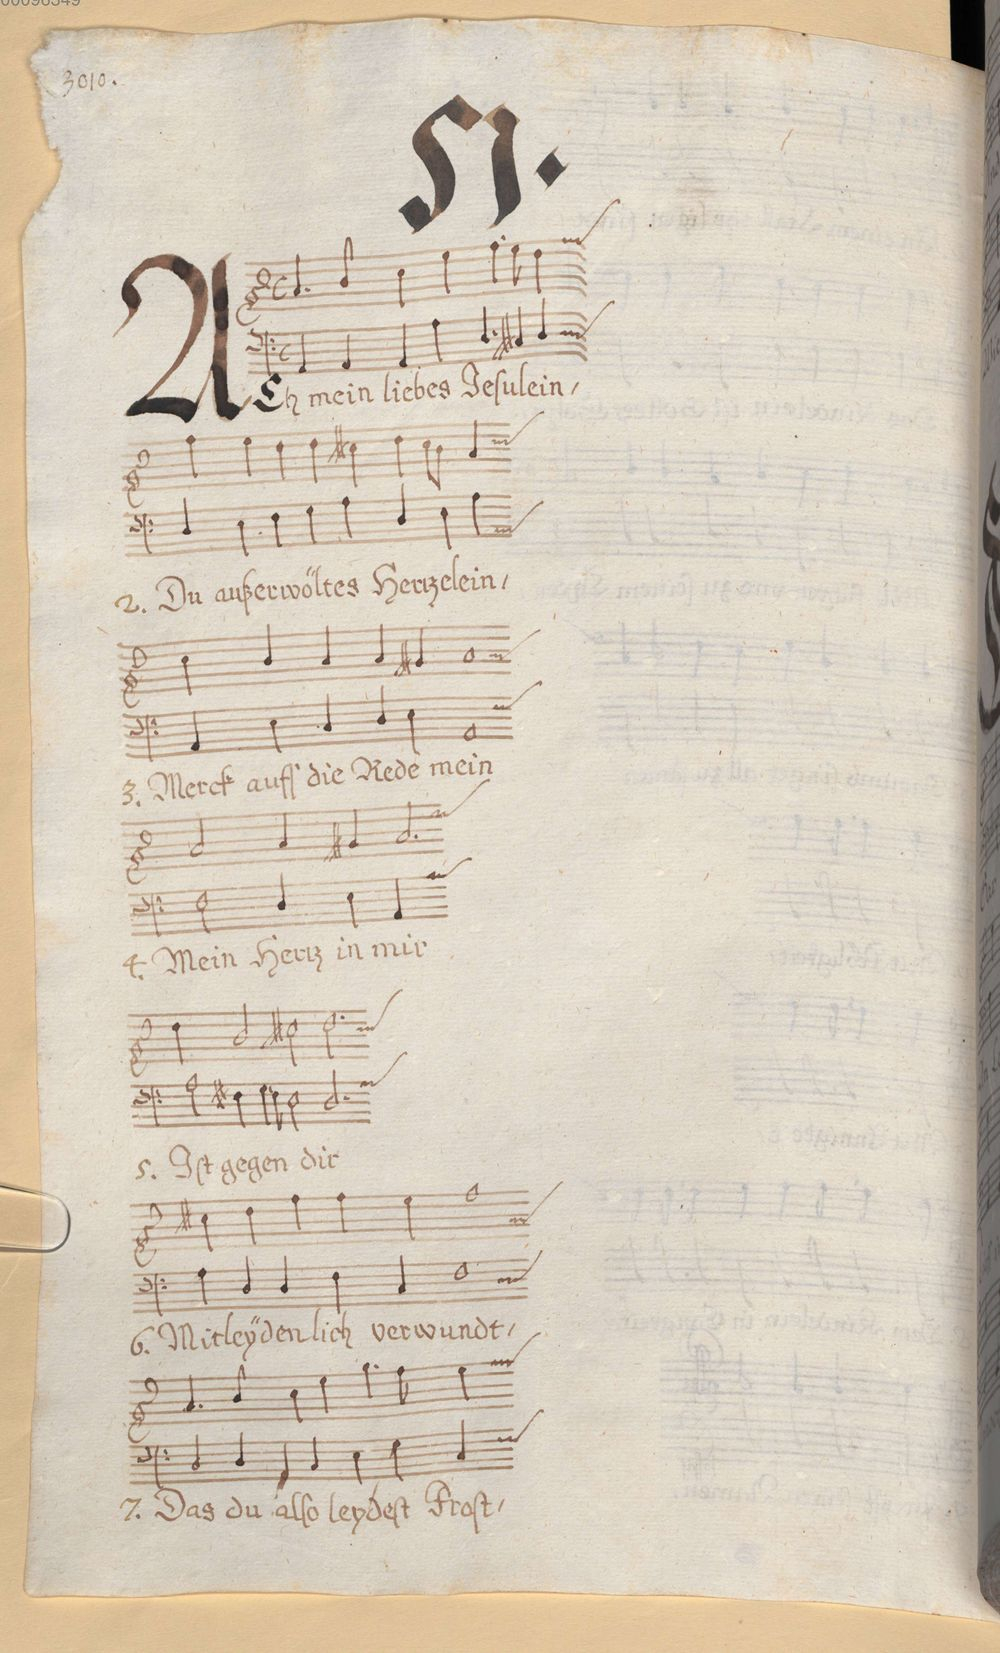 3010.
51.
ACh mein liebes Jesulein/
2. Du außerwöltes Hertzelein/
3. Merck auff die Rede mein
4. Mein Hertz in mir
5. Ist gegen dir
6. Mitleÿdenlich verwundt/
7. Das du also leydest Frost/